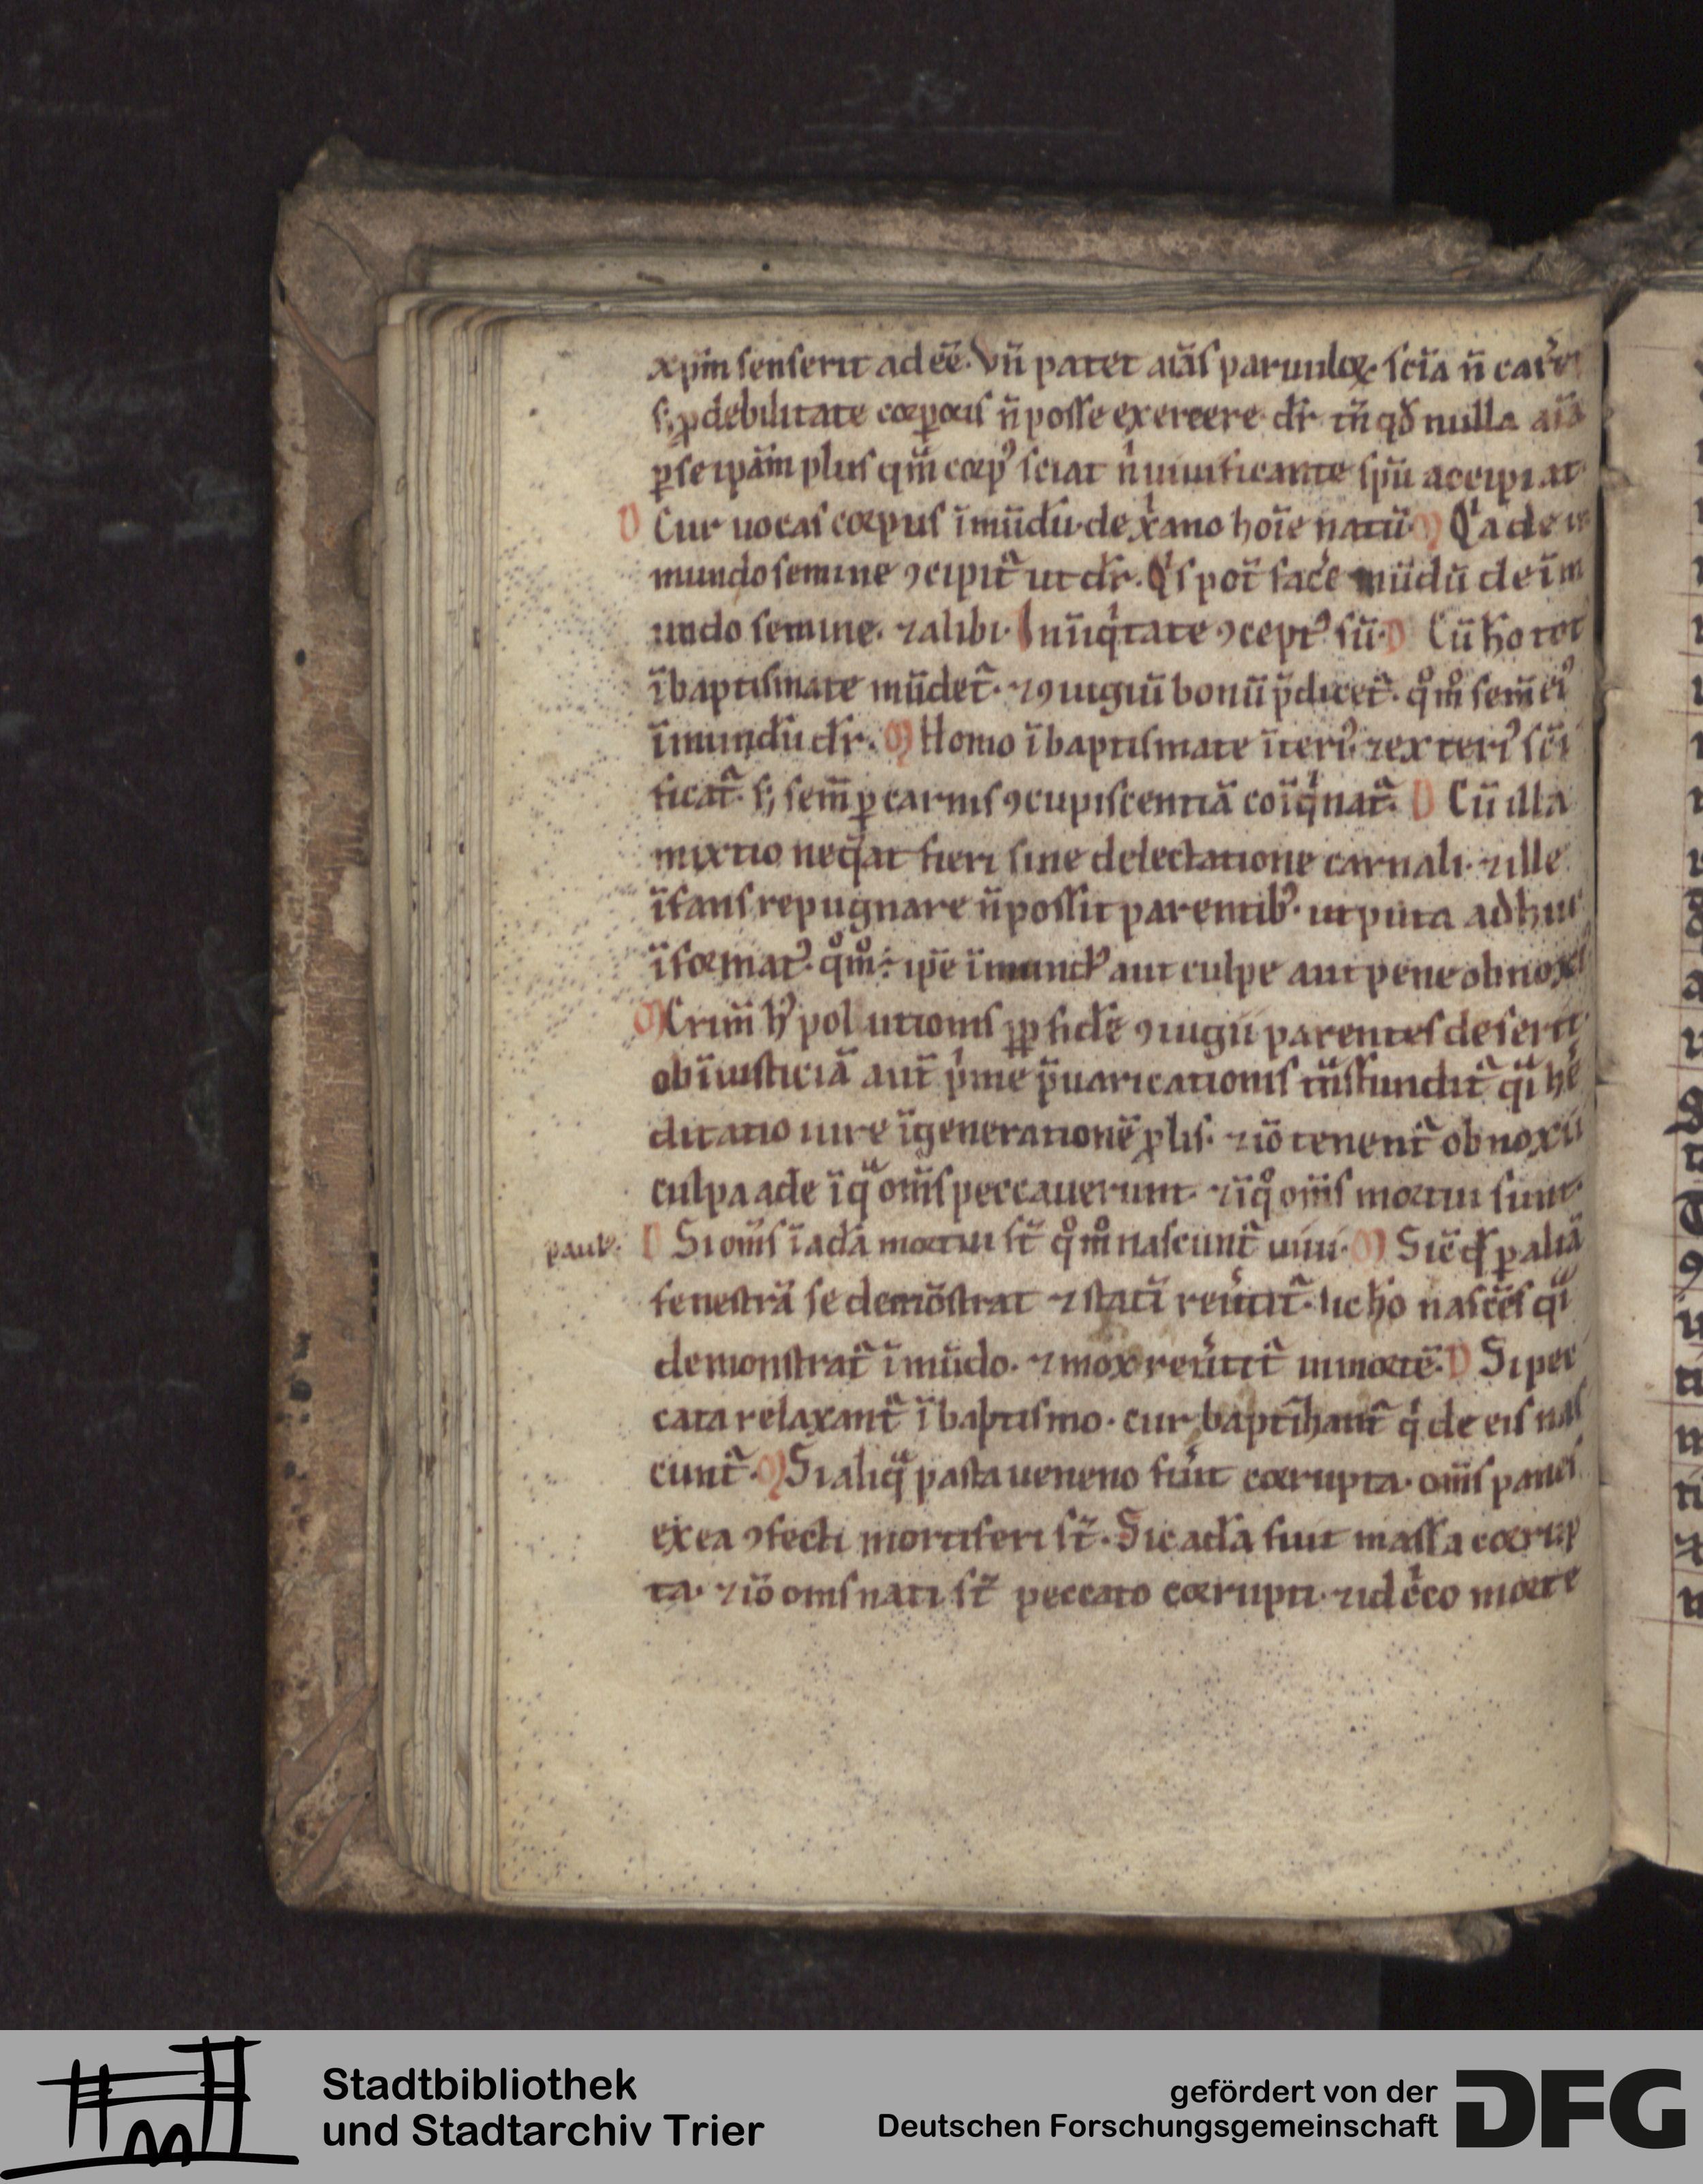 xp̄m senserit ad eē̄. Vn̄ patet aīas paruuloꝝ. scīa n̄ car̄e
s; ꝓ debilitate corporis n̄ posse exercere. dr̄ tn̄ qđ nulla aīa
ꝑ se ipām plus qm̄ corpꝰ sciat nͥ uiuificante spū accipiat.
D Cur uocas corpus īmūdū. de xāno hoīe natū. M Qͥa de in
mundo semine ꝯcipit᷑ ut dr̄. Qͥs pot̄ face mūdū de īm
undo semine. ⁊ alibi. In iniqͥtate ꝯceptꝰ sū. D Cū ho tot᷑
ī baptismate mūdet᷑. ⁊ ꝯiugiū bonū p̄dicet᷑. qͦmͦ sem̄ eiꝰ
īmundū dr̄. M Homo ī baptismate īteriꝰ. ⁊ exteriꝰ sc̄i
ficat᷑. s; sem̄ ꝑ carnis ꝯcupiscentiā coīqͥnat᷑. D Cū illa
mixtio neqͣat fieri sine delectatione carnali. ⁊ ille
īfans repugnare n̄ possit parentibꝰ. utputa adhuc
īformatꝰ. qͦmͦ: ip̄e īmundꝰ aut culpe aut pene obnoxiꝰ
M Crim̄ hꝰ pollutionis ꝓp̄ fidē ꝯiugii parentes deserit.
ob īiusticiā aut̄ pͥme p̄uaricationis tͣnsfundit᷑ qͣi he
ditario iure ī generationē ꝓlis. ⁊ iō tenent᷑ obnoxii
culpa ade ī qͣ om̄s peccauerunt. ⁊ ī qͦ om̄s mortui sunt.
paulꝰ. D Si om̄s ī adā mortui st̄ qͦmͦ nascunt᷑ uiui. M Sic qͥs ꝑ aliā
fenestrā se demōstrat ⁊ statī reu̾tit᷑. sic ho nascēs qͣi
demonstrat᷑ ī mūdo. ⁊ mox reu̾tit᷑ in mortē. D Si pec
cata relaxant᷑ ī baptismo. cur baptīzant᷑ qͥ de eis nas
cunt᷑. M Si aliqͣ pasta ueneno fu̾it corrupta. om̄s panes
ex ea ꝯfecti mortiferi st̄. Sic adā fuit massa corrup
ta. ⁊ iō om̄s nati st̄ peccato corrupti. ⁊ idcͥco morte
Stadtbibliothek
und Stadtarchiv Trier
gefördert von der
Deutschen Forschungsgemeinschaft
DFG